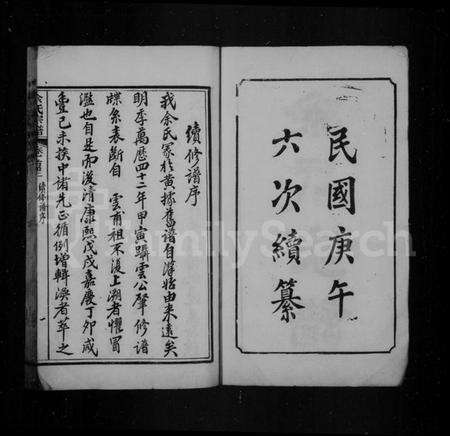 民國庚午
六次續纂
續修譜序
我余氏冢於黄據舊譜自淳始由来遠矣
明季萬歷四十二年甲寅躋雲公肇修譜
牒糸表斷自 雲甫祖不復上溯者懼冒
濫也自是而後清康熙戊戌嘉慶丁卯咸
豐己未族中諸先正循例增輯渙者萃之
余氏宗譜
續修譜序
FamilySearch